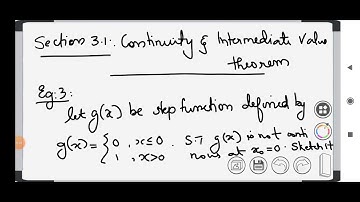 Section 3.1:. Continuity & Intermediate Value
theorem
Eg:3:
let g(x) be step function defined by
g(x) = { 0 , x ≤ 0 . S.T g(x) is not conti
1 , x > 0 nous at x₀ = 0. Sketch it